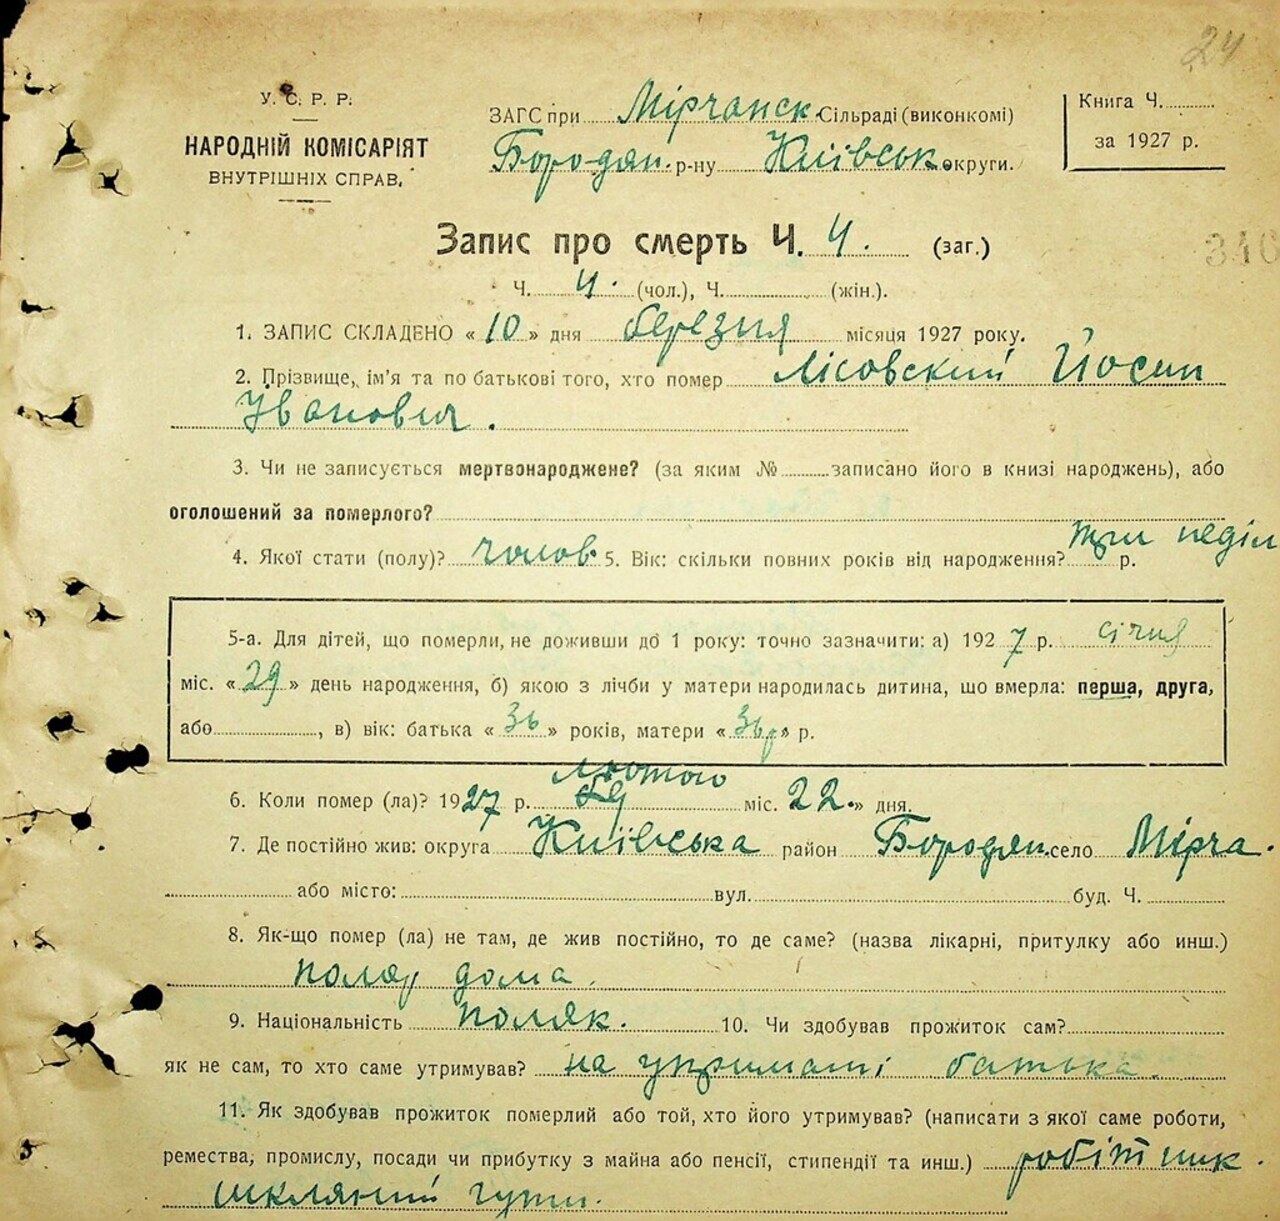 24
У. С. Р. Р.
НАРОДНІЙ КОМІСАРІЯТ
ВНУТРІШНІХ СПРАВ.
ЗАГС при Мірчанск. Сільраді (виконкомі)
Бородян. р-ну Київськ округи.
Книга Ч.
за 1927 р.
346
Запис про смерть Ч. 4. (заг.)
Ч. 4. (чол.), Ч. (жін.).
1. ЗАПИС СКЛАДЕНО «10» дня березня місяця 1927 року.
2. Прізвище, ім'я та по батькові того, хто помер Лісовский Йосип
Іванович.
3. Чи не записується мертвонароджене? (за яким № записано його в книзі народжень), або
оголошений за померлого?
4. Якої стати (полу)? чолов. 5. Вік: скільки повних років від народження? три неділи р.
5-а. Для дітей, що померли, не доживши до 1 року: точно зазначити: а) 1927 р. січня
міс. «29» день народження, б) якою з лічби у матери народилась дитина, що вмерла: перша, друга,
або , в) вік: батька «36» років, матери «36» р.
6. Коли помер (ла)? 1927 р. лютого міс. 22.» дня.
7. Де постійно жив: округа Київська район Бородян. село Мірча.
або місто: вул. буд. Ч.
8. Як-що помер (ла) не там, де жив постійно, то де саме? (назва лікарні, притулку або инш.)
дома.
9. Національність поляк. 10. Чи здобував прожиток сам?
як не сам, то хто саме утримував? на утримані батька.
11. Як здобував прожиток померлий або той, хто його утримував? (написати з якої саме роботи,
ремества, промислу, посади чи прибутку з майна або пенсії, стипендії та инш.) робітник
шкляний гути.